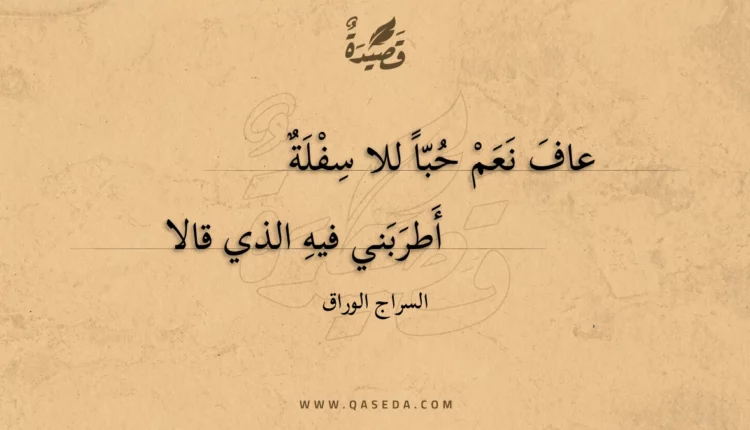 قَصِيْدَةٌ
عافَ نَعَمْ حُبّاً للا سِفْلَةٌ
أَطرَبَني فيهِ الذي قالا
السراج الوراق
WWW.QASEDA.COM